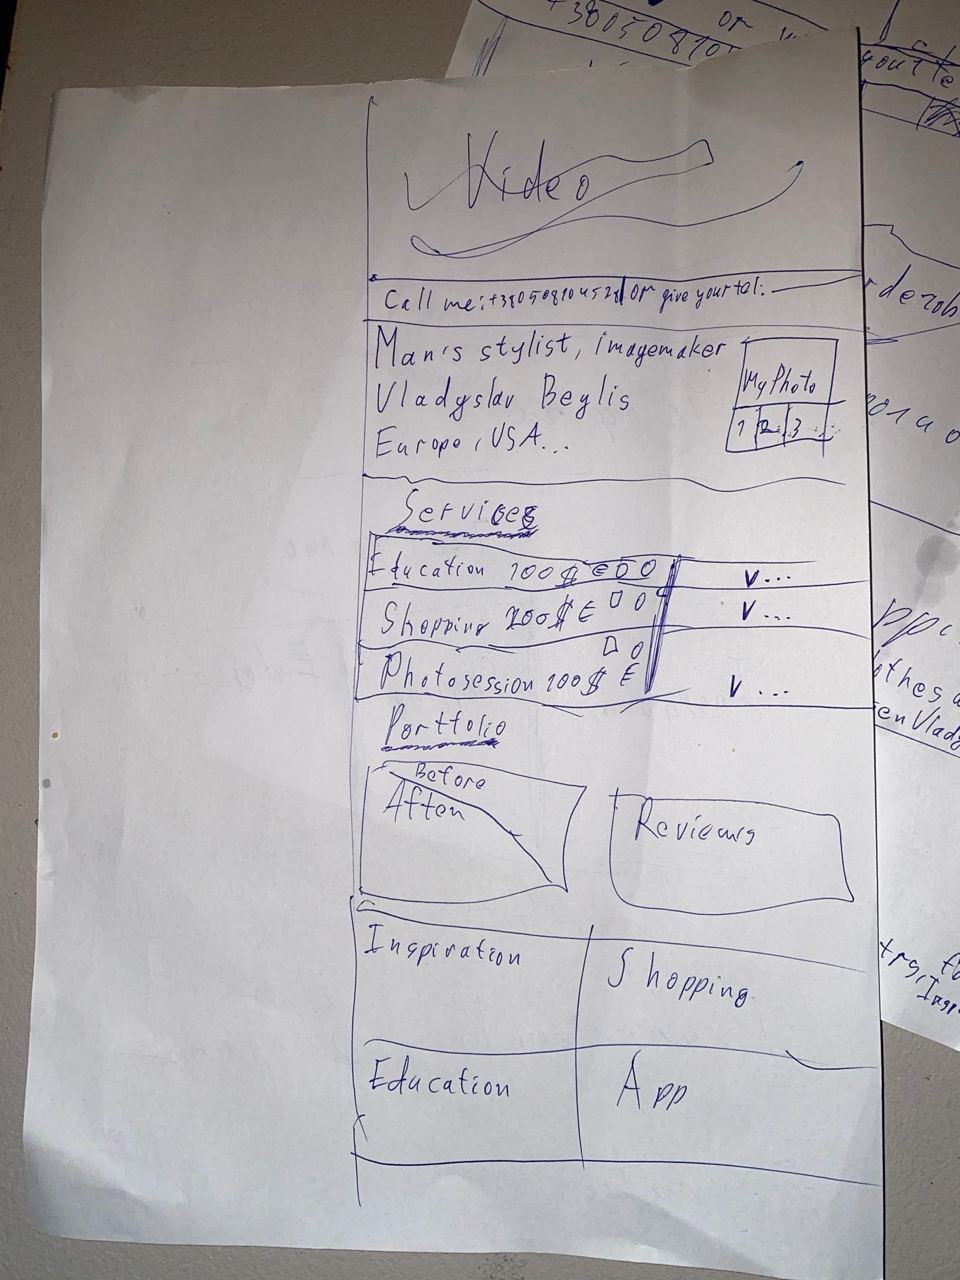 +38050810
or
Video
Call me: +380508104528 or give your tel:
Man's stylist, imagemaker
Vladyslav Beglis
Europe, USA...
My Photo
1 2 3
Services
Education 100 $ €
V...
Shopping 200 $ €
V...
Photosession 100 $ €
V...
Portfolio
Before
After
Reviews
Inspiration
Shopping
Education
App